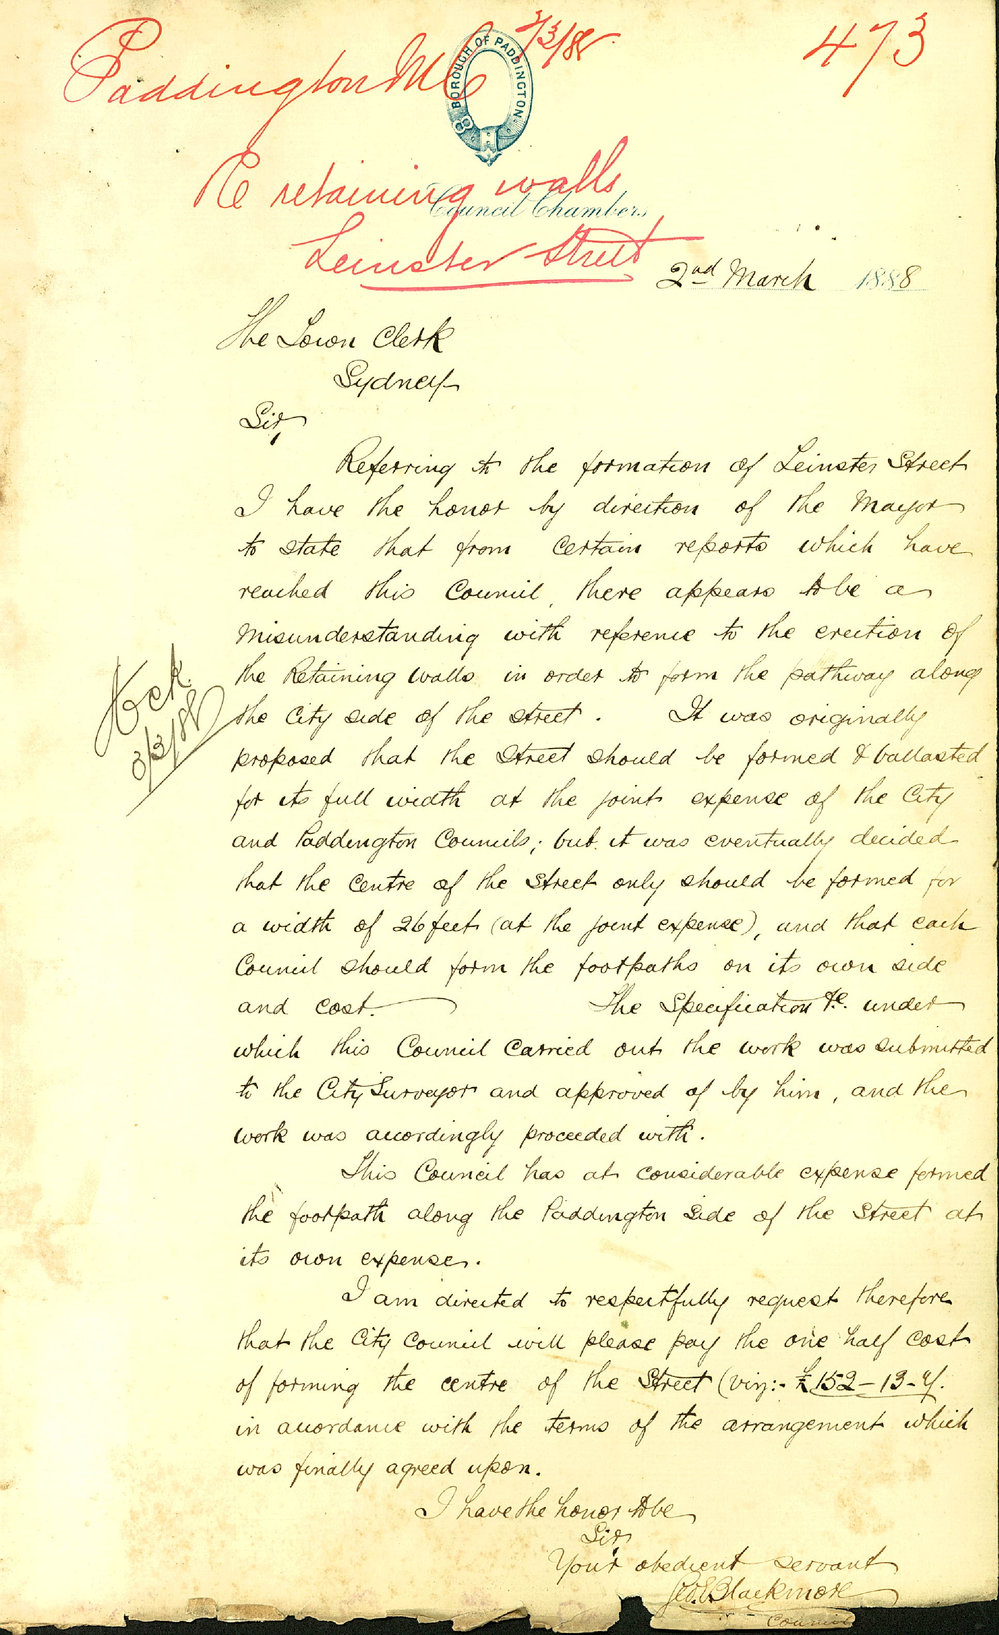 Paddington M C 3/3/88
473
BOROUGH OF PADDINGTON
Re retaining walls
Council Chambers,
Leinster Street
2nd March 1888
The Town Clerk
Sydney
Sir,
Referring to the formation of Leinster Street
I have the honor by direction of the Mayor
to state that from certain reports which have
reached this Council, there appears to be a
misunderstanding with reference to the erection of
the Retaining walls in order to form the pathway along
the City side of the street. It was originally
proposed that the Street should be formed & ballasted
for its full width at the joint expense of the City
and Paddington Councils; but it was eventually decided
that the Centre of the Street only should be formed for
a width of 26 feet (at the joint expense), and that each
Council should form the footpaths on its own side
and cost. The Specification &c. under
which this Council Carried out the work was submitted
to the City Surveyor and approved of by him, and the
work was accordingly proceeded with.
This Council has at considerable expense formed
the footpath along the Paddington Side of the Street at
its own expense.
I am directed to respectfully request therefore
that the City Council will please pay the one half cost
of forming the centre of the Street (viz:- £152-13-4).
in accordance with the terms of the arrangement which
was finally agreed upon.
I have the honor to be
Sir
Your obedient servant
Geo. E. Blackmore
Council
Ack.
3/3/88